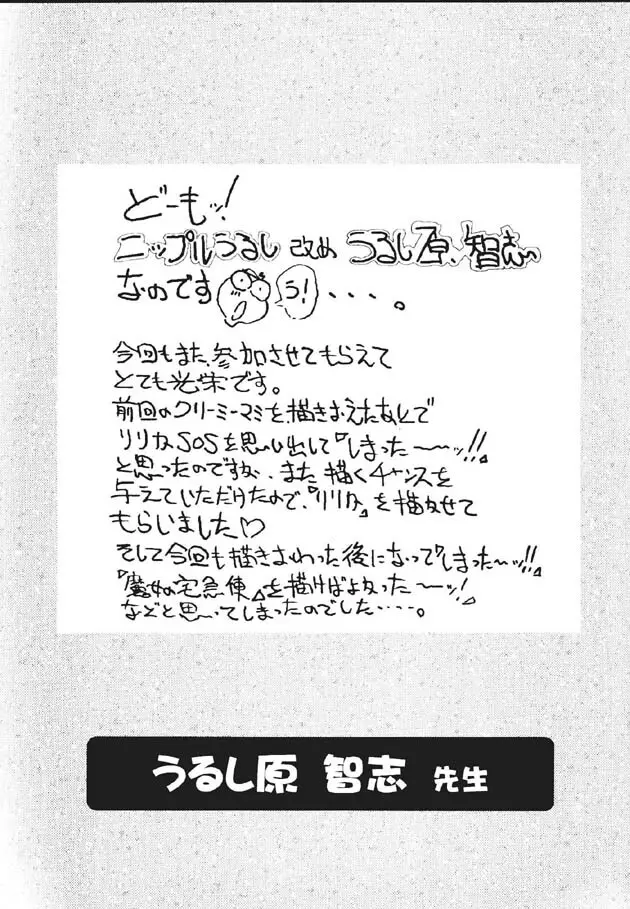 どーもッ!
ニップルうるし 改め うるし原、智志〜
なのです う!・・・・。
今回もまた、参加させてもらえて
とても光栄です。
前回のクリーミーマミを、描きおえたあとで
リリカSOSを思い出して『しまった〜〜ッ!!』
と思ったのですが、また描くチャンスを
与えていただけたので、『リリカ』を描かせて
もらいました♡
そして今回も描きおわった後になって『しまった〜ッ!!』
『魔女の宅急便』を描けばよかった〜〜ッ!』
などと思ってしまったのでした・・・・。
うるし原 智志 先生